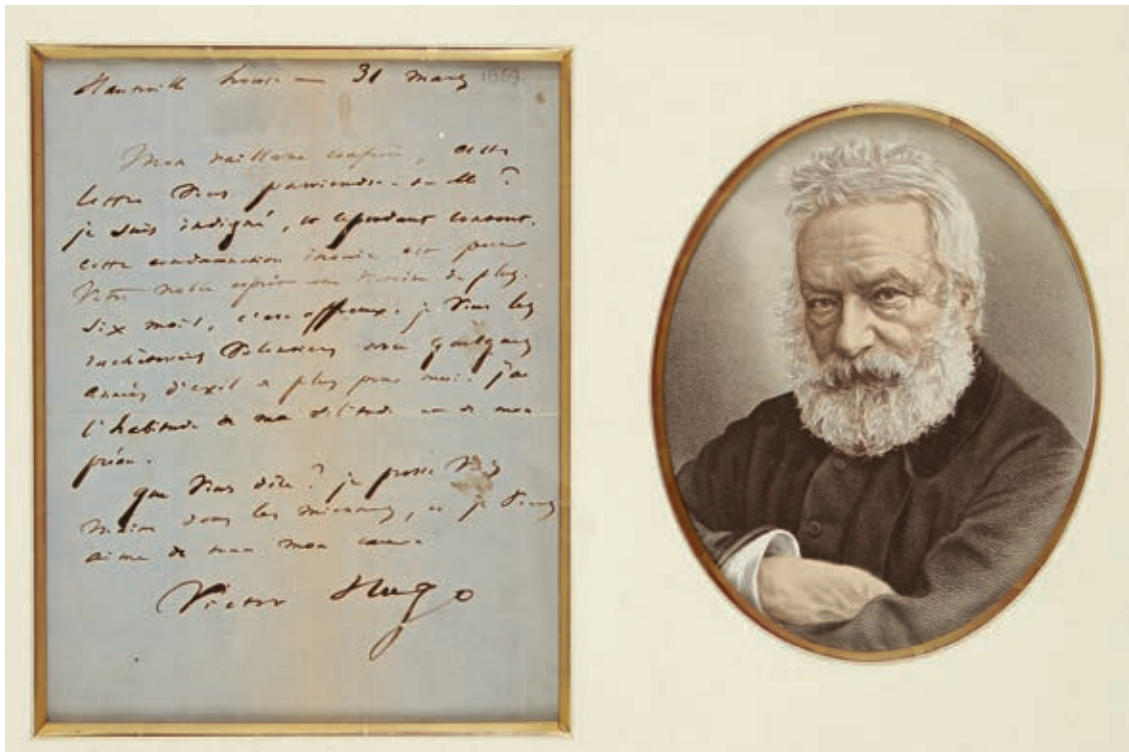 Hauteville house — 31 mars 1869.
Mon vaillant confrère, cette
lettre vous parviendra-t-elle ?
je suis indigné, et cependant content.
cette condamnation inouïe est pour
votre noble esprit un de plus.
six mois, c'est affreux. je vous les
rachèterais volontiers avec quelques
années d'exil de plus pour moi. j'ai
l'habitude de ma solitude et de mon
que vous dire ? je presse vos
mains dans les miennes, et je vous
aime de tout mon cœur.
Victor Hugo